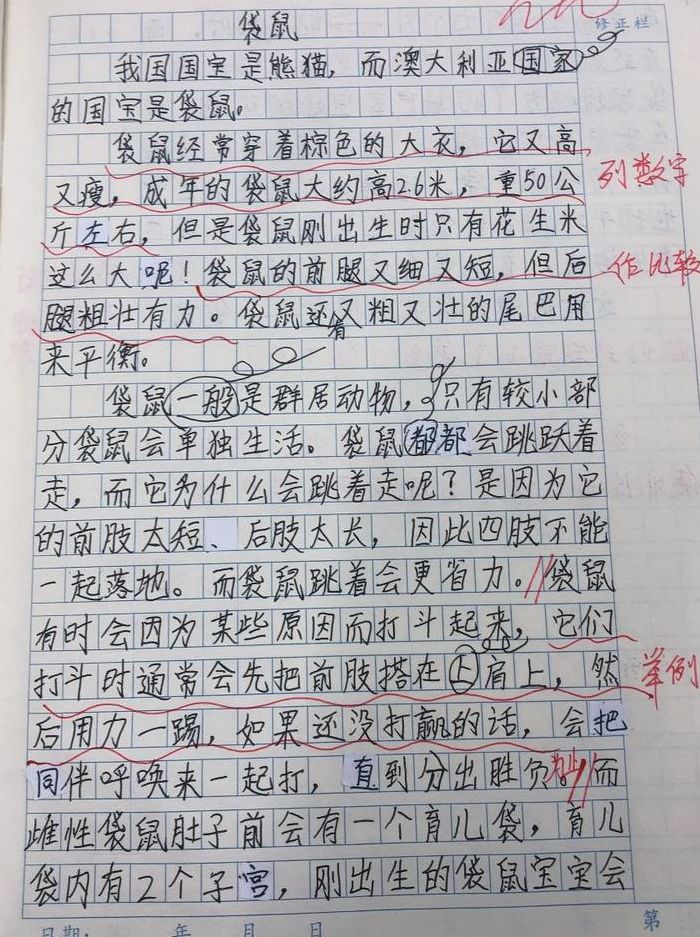 袋鼠
修正栏
我国国宝是熊猫，而澳大利亚国家
的国宝是袋鼠。
袋鼠经常穿着棕色的大衣，它又高
又瘦，成年的袋鼠大约高2.6米，重50公
列数字
斤左右，但是袋鼠刚出生时只有花生米
这么大呢！袋鼠的前腿又细又短，但后
作比较
腿粗壮有力。袋鼠还有又粗又壮的尾巴用
来平衡。
袋鼠一般是群居动物，只有较小部
分袋鼠会单独生活。袋鼠都都会跳跃着
走，而它为什么会跳着走呢？是因为它
的前肢太短、后肢太长，因此四肢不能
一起落地。而袋鼠跳着会更省力。袋鼠
有时会因为某些原因而打斗起来，它们
打斗时通常会先把前肢搭在上肩上，然
举例
后用力一踢，如果还没打赢的话，会把
同伴呼唤来一起打，直到分出胜负为止。而
雌性袋鼠肚子前会有一个育儿袋，育儿
袋内有2个子宫，刚出生的袋鼠宝宝会
日期： 年 月 日
第